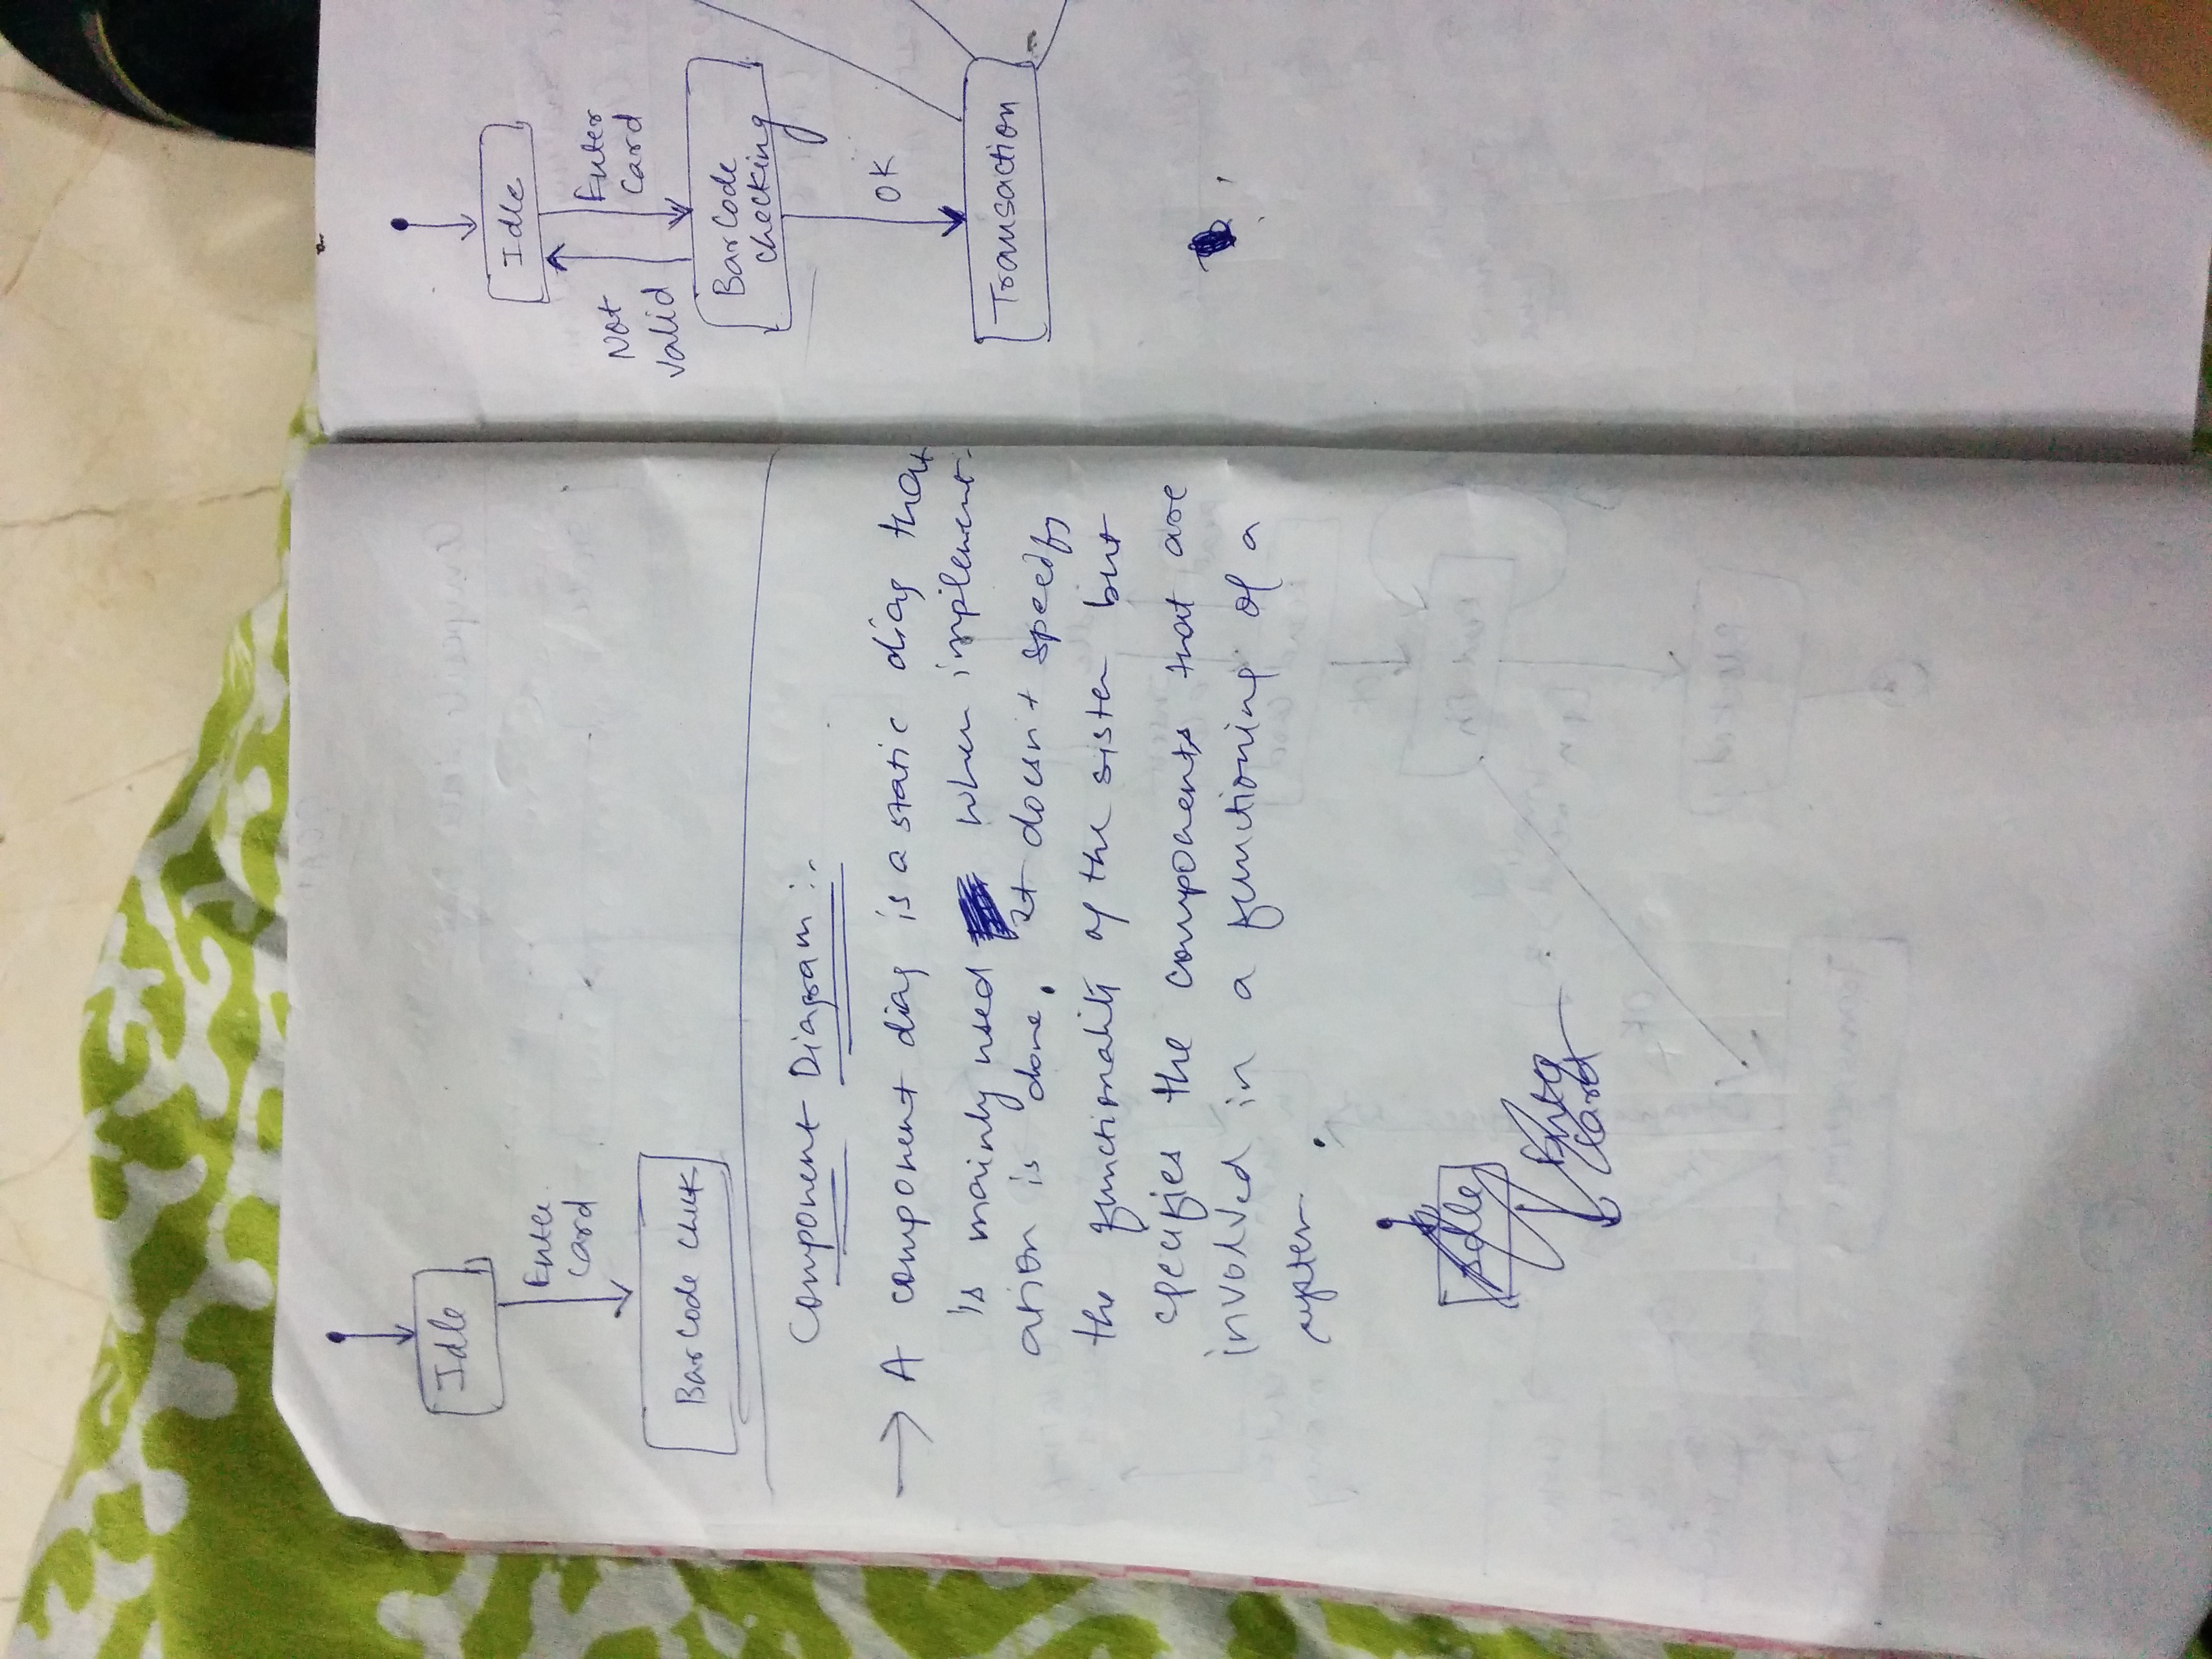 Idle
Enter
Card
Bar Code check
Component Diagram :-
→ A component diag is a static diag that
is mainly used when implement-
ation is done. It doesn't specify
the functionality of the sistem but
specifies the components that are
involved in a functioning of a
system.
Idle
Enter
Card
Idle
Not
Valid
Enter
Card
Bar Code
checking
OK
Transaction